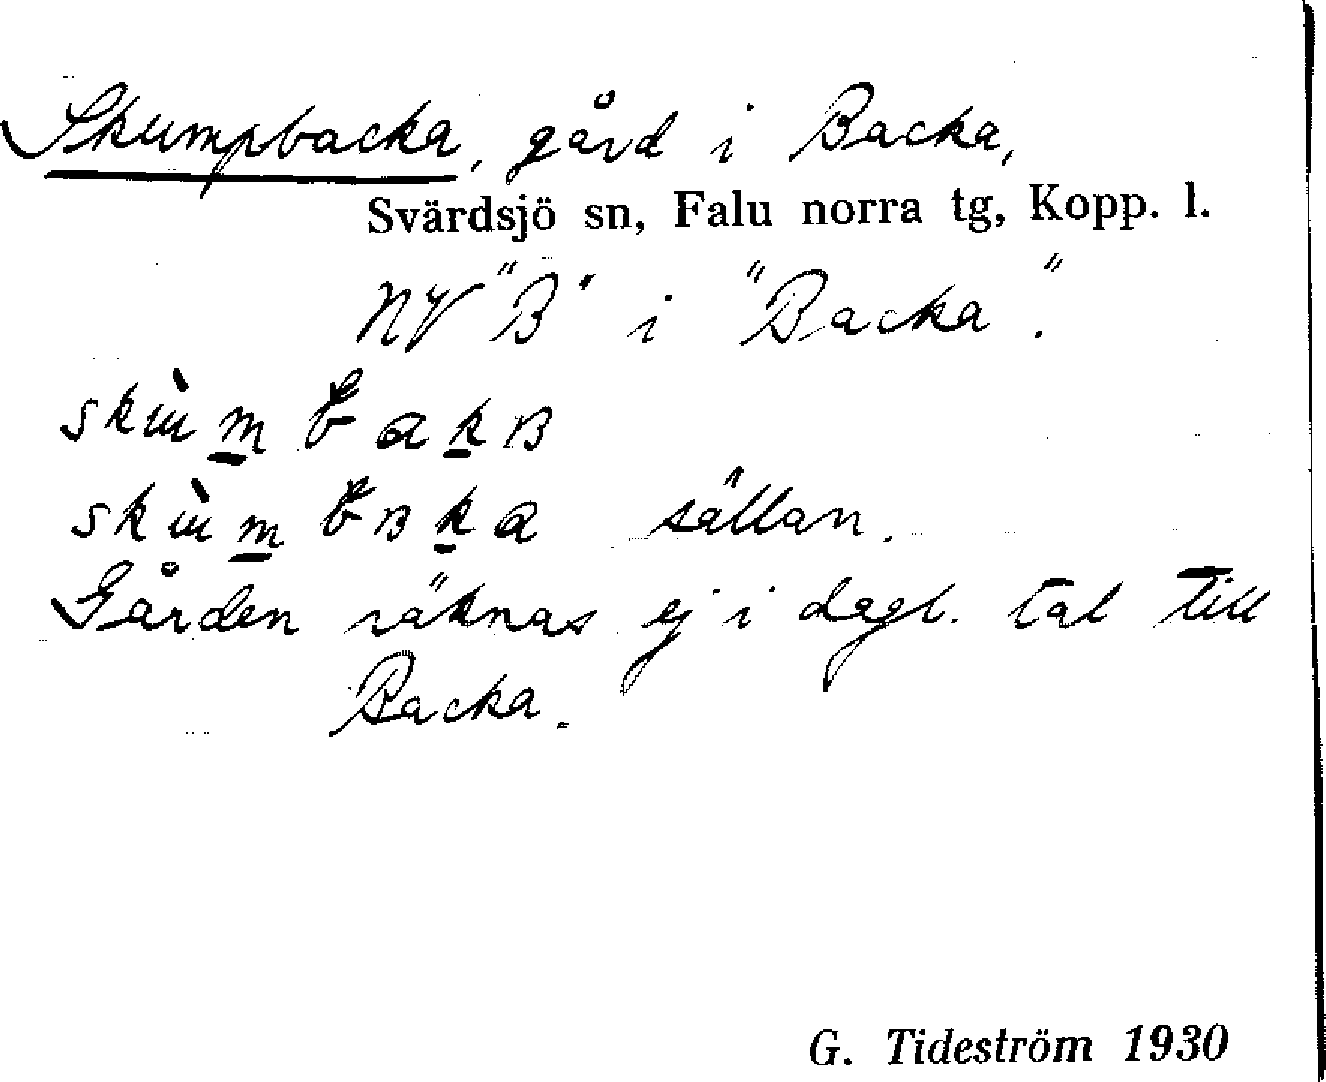 Skumpbacka, gård i Backa,
Svärdsjö sn, Falu norra tg, Kopp. l.
NV "B" i "Backa".
skùm bakʙ
skùm bʙka sällan.
Gården räknas ej i dagl. tal till
Backa.
G. Tideström 1930